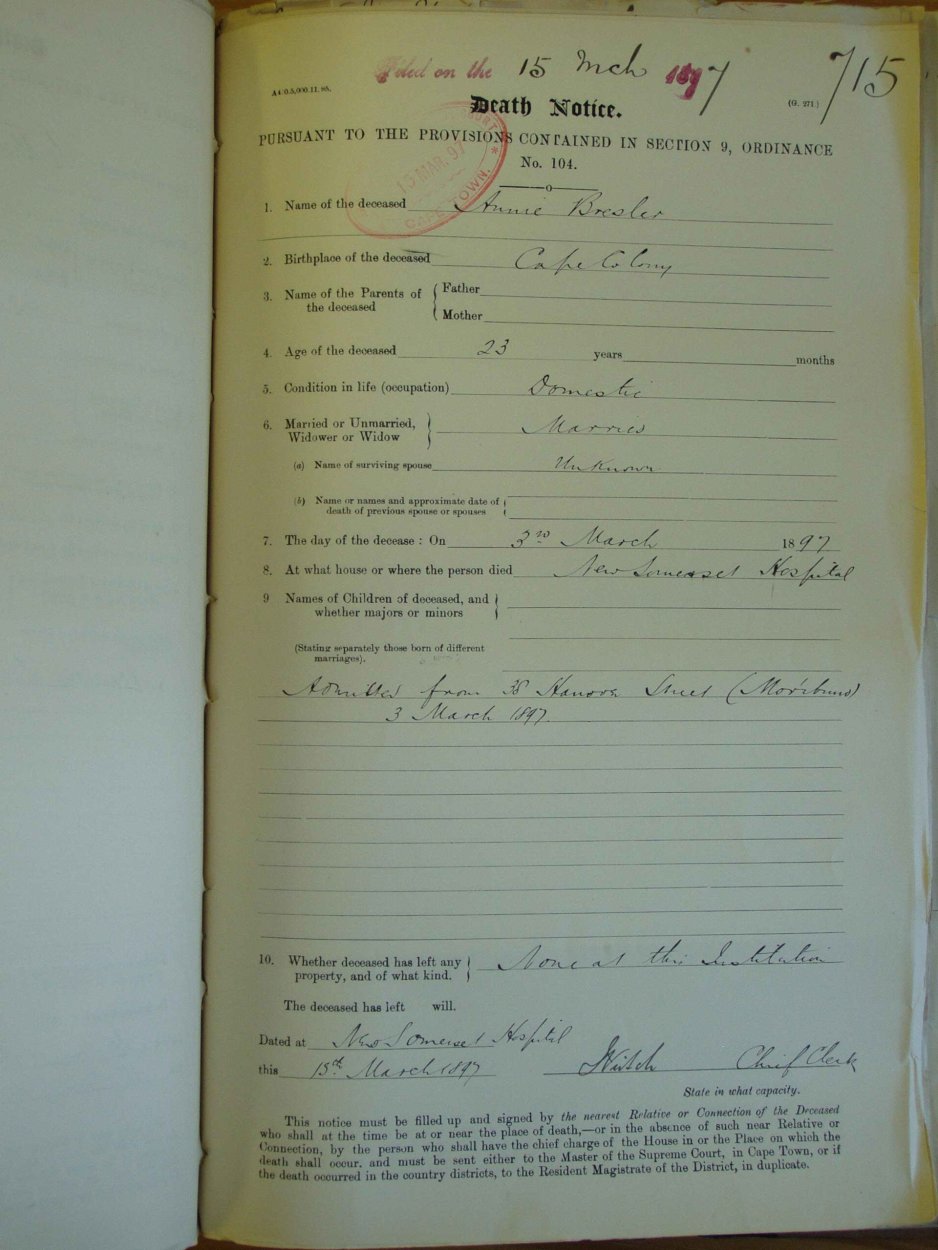 Filed on the 15 Mch 1897
715
A4/0.5,000.11.95.
(G. 271.)
Death Notice.
PURSUANT TO THE PROVISIONS CONTAINED IN SECTION 9, ORDINANCE
No. 104.
15 MAR. 97
CAPE TOWN.
1. Name of the deceased Annie Bresler
2. Birthplace of the deceased Cape Colony
3. Name of the Parents of the deceased
Father
Mother
4. Age of the deceased 23 years months
5. Condition in life (occupation) Domestic
6. Married or Unmarried,
Widower or Widow Married
(a) Name of surviving spouse Unknown
(b) Name or names and approximate date of
death of previous spouse or spouses
7. The day of the decease : On 3rd March 1897
8. At what house or where the person died New Somerset Hospital
9 Names of Children of deceased, and
whether majors or minors
(Stating separately those born of different
marriages).
Admitted from 38 Hanover Street (Moribund)
3 March 1897.
10. Whether deceased has left any
property, and of what kind. None at this Institution
The deceased has left will.
Dated at New Somerset Hospital
this 15th March 1897 Chief Clerk
State in what capacity.
This notice must be filled up and signed by the nearest Relative or Connection of the Deceased
who shall at the time be at or near the place of death,—or in the absence of such near Relative or
Connection, by the person who shall have the chief charge of the House in or the Place on which the
death shall occur. and must be sent either to the Master of the Supreme Court, in Cape Town, or if
the death occurred in the country districts, to the Resident Magistrate of the District, in duplicate.